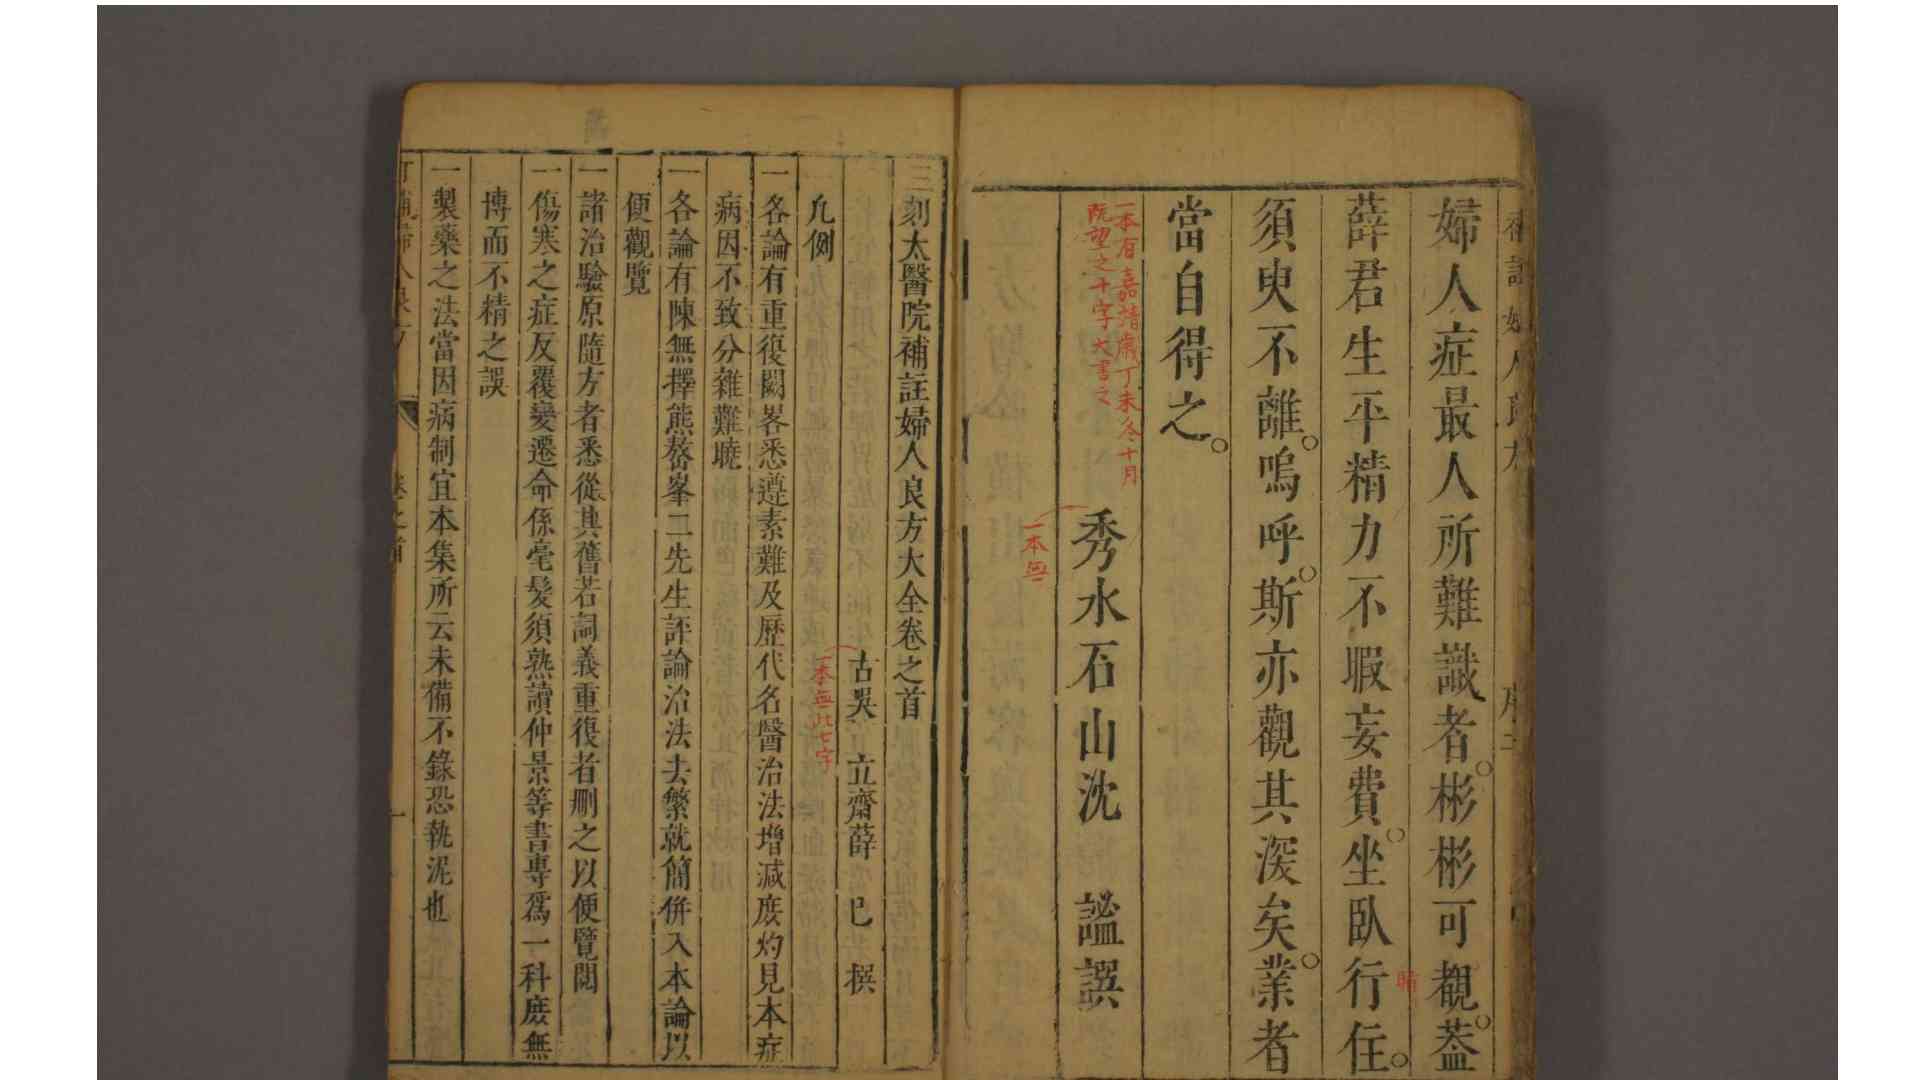 婦人症最人所難識者。彬彬可覩。葢
薛君生平精力不暇妄費。坐臥行住。
睹
須臾不離。嗚呼。斯亦觀其深矣。業者
當自得之。
一本有嘉靖歲丁未冬十月
既望之十字大書之
秀水石山沈 謐譔
一本無
三刻太醫院補註婦人良方大全卷之首
古吳 立齋薛 已 撰
一本無此七字
凡例
一各論有重復闕畧悉遵素難及歷代名醫治法增減庶灼見本症
病因不致分雜難曉
一各論有陳無擇熊鰲峯二先生評論治法去繁就簡併入本論以
便觀覽
一諸治驗原隨方者悉從其舊若詞義重復者刪之以便覽閱
一傷寒之症反覆變遷命係毫髮須熟讀仲景等書專爲一科庶無
博而不精之誤
一製藥之法當因病制宜本集所云未備不錄恐執泥也